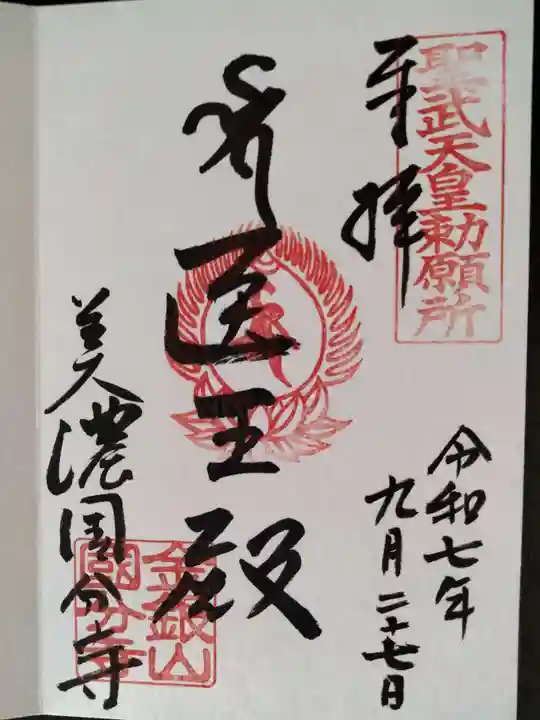 聖武天皇勅願所
奉拝
令和七年
九月二十七日
医王殿
美濃国分寺
金銀山
國分寺